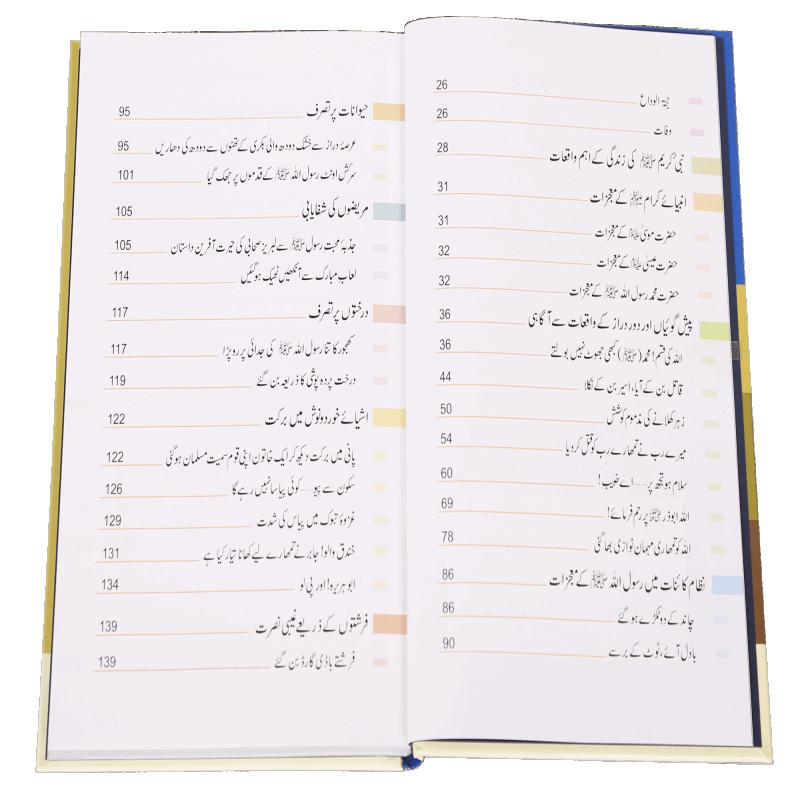 حجۃ الوداع 26
وفات 26
نبی کریم ﷺ کی زندگی کے اہم واقعات 28
انبیائے کرام علیہم السلام کے معجزات 31
حضرت موسیٰ علیہ السلام کے معجزات 31
حضرت عیسیٰ علیہ السلام کے معجزات 32
حضرت محمد رسول اللہ ﷺ کے معجزات 32
پیش گوئیاں اور دور دراز کے واقعات سے آگاہی 36
اللہ کی قسم! محمد (ﷺ) کبھی جھوٹ نہیں بولتے 36
قاتل بن کے آیا، اسیر بن کے نکلا 44
زہر کھلانے کی مذموم کوشش 50
میرے رب نے تمھارے رب کو قتل کر دیا 54
سلام ہو تجھ پر — اے خبیب! 60
اللہ ابوذر رضی اللہ عنہ پر رحم فرمائے! 69
اللہ کو تمھاری مہمان نوازی بھا گئی 78
نظام کائنات میں رسول اللہ ﷺ کے معجزات 86
چاند کے دو ٹکڑے ہو گئے 86
بادل آئے، ٹوٹ کے برسے 90
حیوانات پر تصرف 95
عرصۂ دراز سے خشک دودھ والی بکری کے تھنوں سے دودھ کی دھاریں 95
سرکش اونٹ رسول اللہ ﷺ کے قدموں پر جھک گیا 101
مریضوں کی شفایابی 105
جذبۂ محبت رسول ﷺ سے لبریز صحابی کی حیرت آفرین داستان 105
لعاب مبارک سے آنکھیں ٹھیک ہو گئیں 114
درختوں پر تصرف 117
کھجور کا تنا رسول اللہ ﷺ کی جدائی پر رو پڑا 117
درخت پردہ پوشی کا ذریعہ بن گئے 119
اشیائے خورد و نوش میں برکت 122
پانی میں برکت دیکھ کر ایک خاتون اپنی قوم سمیت مسلمان ہو گئی 122
سکون سے پیو — کوئی پیاسا نہیں رہے گا 126
غزوۂ تبوک میں پیاس کی شدت 129
خندق والو! جابر نے تمھارے لیے کھانا تیار کیا ہے 131
ابو ہریرہ! اور پی لو 134
فرشتوں کے ذریعے غیبی نصرت 139
فرشتے باڈی گارڈ بن گئے 139